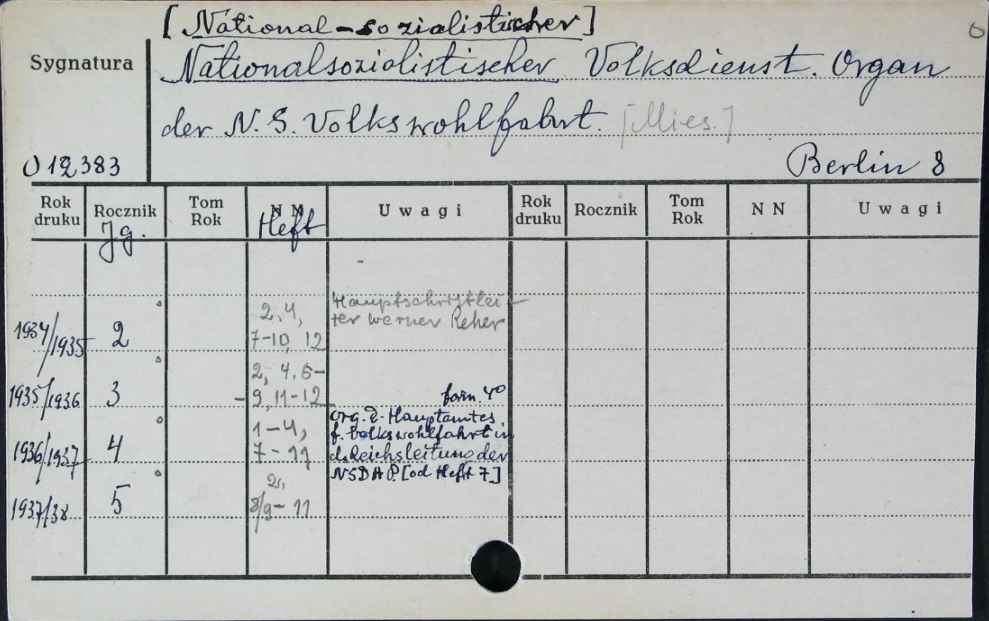 [National-sozialistischer]
Sygnatura
Nationalsozialistischer Volksdienst. Organ
der N.S. Volkswohlfahrt. [Mies.]
O 12,383
Berlin 8
Rok druku Rocznik Tom Rok NN Uwagi Rok druku Rocznik Tom Rok NN Uwagi
Jg. Heft
Hauptschriftlei-
ter Werner Reher
1934/1935 2 2, 4,
7-10, 12
1935/1936 3 2, 4, 6-
9, 11-12 form. 4°
1936/1937 4 1-4,
7-11
Org. d. Hauptamtes
f. Volkswohlfahrt in
d. Reichsleitung der
NSDAP. [od Heft 7]
1937/38 5 2,
8/9-11